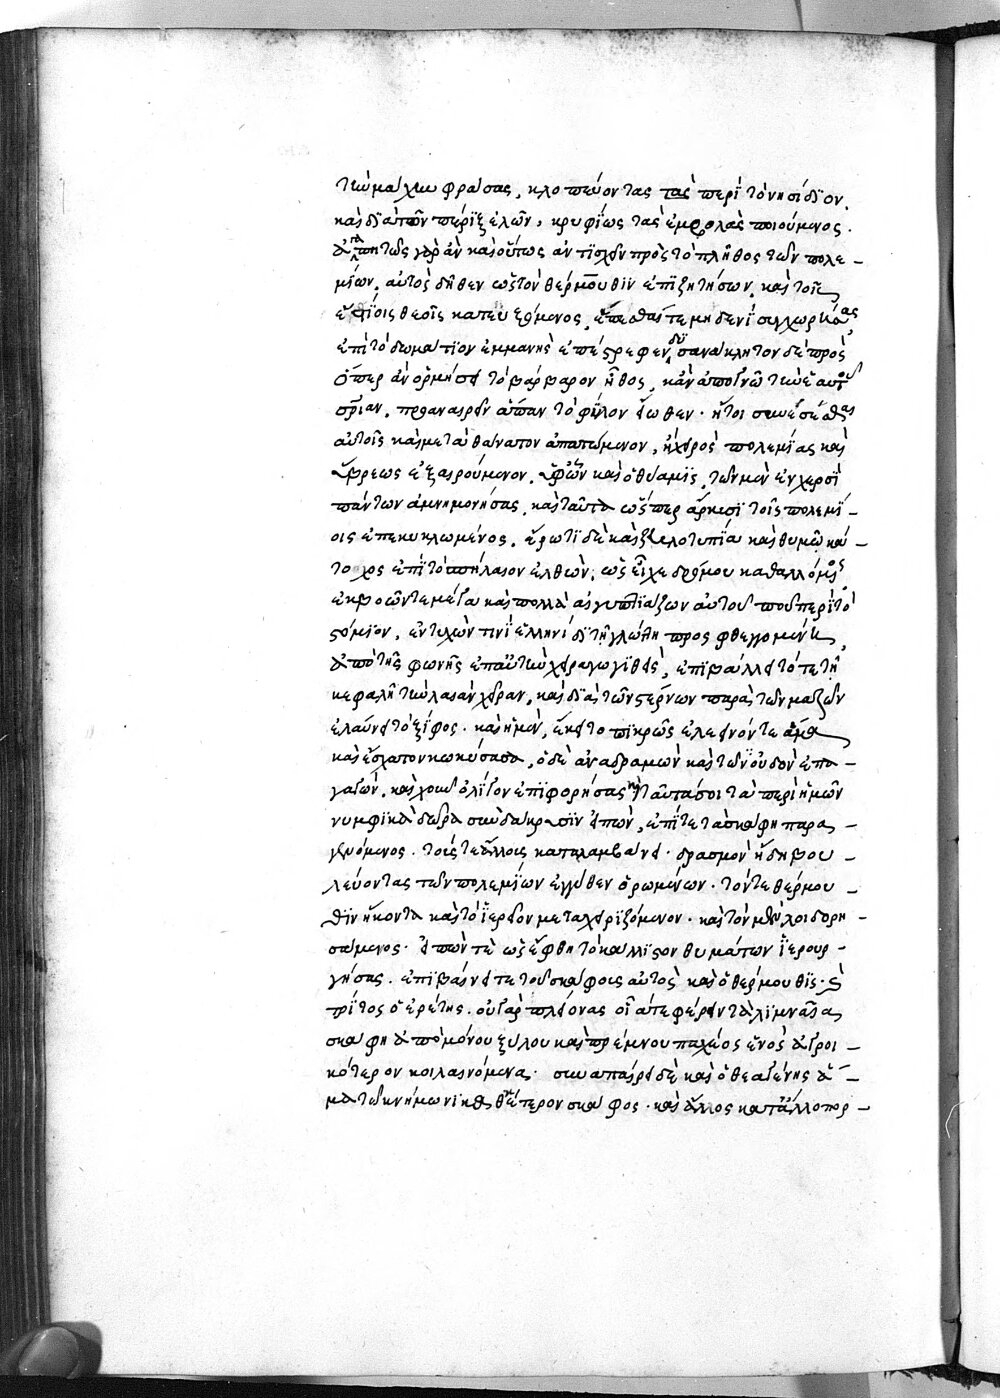 τὴν μάχην φράσας, κλοπεύοντας τὰς περὶ τὸ νησίδιον,
καὶ δι' αὐτῶν πέριξ ἑλῶν, κρυφίως τὰς ἐμβολὰς ποιούμενος.
ἀγαπητῶς γὰρ ἂν καὶ οὕτως ἀντίσχειν πρὸς τὸ πλῆθος τῶν πολε-
μίων. αὐτὸς δῆθεν ὡς τὸν θέρμουθιν ἐπιζητήσων, καὶ τοῖς
ἐφίοις θεοῖς κατευξόμενος, ἕπεσθαί τε μηδενὶ συγχωρήσας,
ἐπὶ τὸ δωμάτιον ἐμμανὴς ἐπέστρεφεν. δυσανάκλητον δὲ πρὸς
ὅπερ ἂν ὁρμήσῃ τὸ βάρβαρον ἦθος, κἂν ἀπογνῷ τὴν ἑαυτοῦ
σωτηρίαν, προαναιρεῖν ἅπαν τὸ φίλον εἴωθεν. ἤτοι συνέσεσθαι
αὐτοῖς καὶ μετὰ θάνατον ἀπατώμενον, ἢ χειρὸς πολεμίας καὶ
ὕβρεως ἐξαιρούμενον. ὑφ' ὧν καὶ ὁ θύαμις, τῶν μὲν ἐν χερσὶ
πάντων ἀμνημονήσας, καὶ ταῦτα ὥσπερ ἄρκυσι τοῖς πολεμί-
οις ἐπικεκυκλωμένος. ἔρωτι δὲ καὶ ζηλοτυπίᾳ καὶ θυμῷ κά-
τοχος ἐπὶ τὸ σπήλαιον ἐλθών, ὡς εἶχε δρόμου καθαλλόμενος
ἐκβοῶν τε μέγα καὶ πολλὰ αἰγυπτιάζων αὐτοῦ που περὶ τὸ
στόμιον, ἐντυχών τινι ἑλληνίδι τῇ γλώττῃ προσφθεγγομένῃ,
ἀπὸ τῆς φωνῆς ἐπ' αὐτὴν χειραγωγηθεὶς, ἐπιβάλλει τό τε τῇ
κεφαλῇ τὴν λαιὰν χεῖραν, καὶ διὰ τῶν στέρνων παρὰ τῶν μαζῶν
ἐλαύνει τὸ ξίφος. καὶ ἡ μὲν, ἔκειτο πικρῶς ἐλεεινόν τε ἅμα
καὶ ἔσχατον κωκύσασα, ὁ δὲ ἀναδραμὼν καὶ τὸν οὐδὸν ἐπα-
γαγών, καὶ χοῦν ὀλίγον ἐπιφορήσας καὶ ταῦτά σοι τὰ παρ' ἡμῶν
νυμφικὰ δῶρα σὺν δάκρυσιν εἰπών, ἐπί τε τὰ σκάφη παρα-
γενόμενος. τούς τε ἄλλους καταλαμβάνει. δρασμὸν ἤδη βου-
λεύοντας τῶν πολεμίων ἐγγύθεν ὁρωμένων. τόν τε θέρμου-
θιν ἥκοντα καὶ τὸ ἱερεῖον μεταχειριζόμενον. καὶ τὸν μὲν λοιδορη-
σάμενος. εἰπών τε ὡς ἔφθη τὸ κάλλιστον θυμάτων ἱερουρ-
γήσας. ἐπιβαίνει τε τοῦ σκάφους αὐτὸς καὶ ὁ θέρμουθις. καὶ
τρίτος ὁ ἐρέτης. οὐ γὰρ πλείονας οἷά τε φέρειν τὰ λιμναῖα
σκάφη ἀπὸ μόνου ξύλου καὶ πρέμνου παχέος ἑνὸς ἀγροι-
κότερον κοιλαινόμενα. συναπαίρει δὲ καὶ ὁ θεαγένης ἅ-
μα τῷ κνήμωνι καθ' ἕτερον σκάφος. καὶ ἄλλος κατ' ἄλλο πορ-